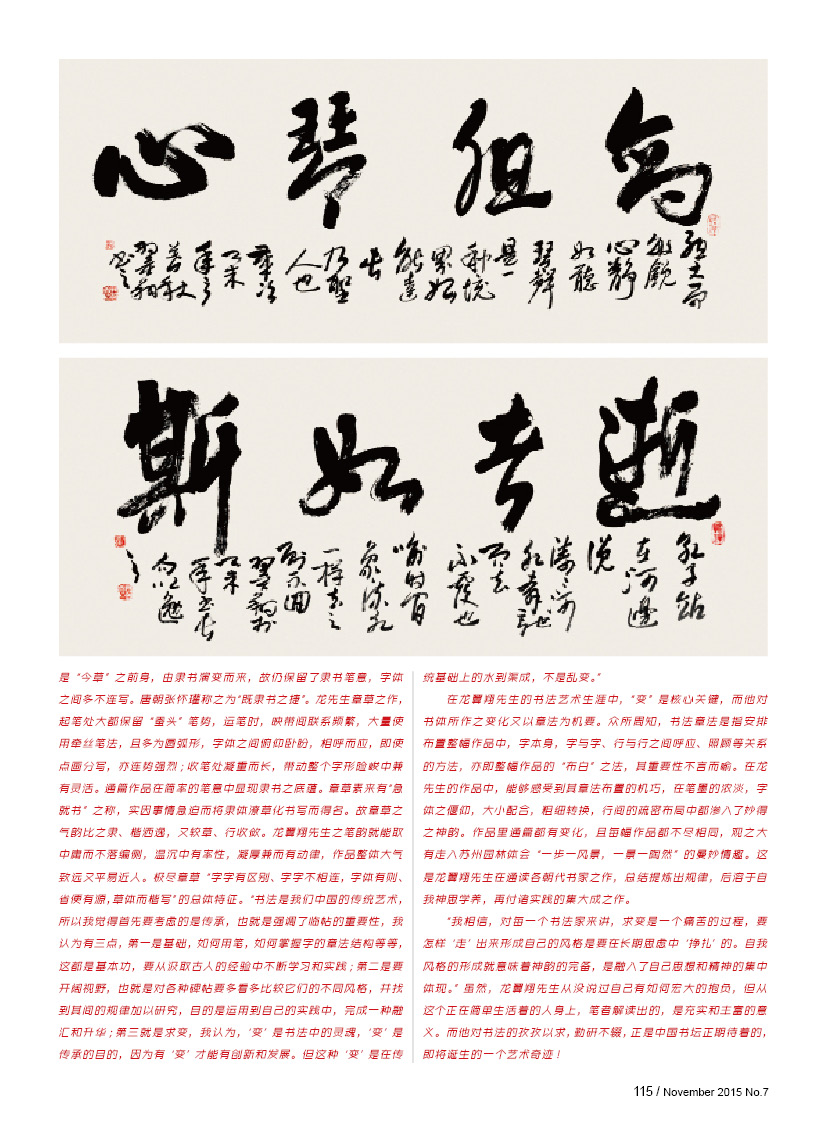 胆 琴 心
逝 者 如 斯
孔子站
在河邊
说
是“今草”之前身，由隶书演变而来，故仍保留了隶书笔意，字体
之间多不连写。唐朝张怀瓘称之为“既隶书之捷”。龙先生章草之作，
起笔处大都保留“蚕头”笔势，运笔时，映带间联系频繁，大量使
用牵丝笔法，且多为圆弧形，字体之间俯仰卧盼，相呼而应，即使
点画分写，亦连势强烈；收笔处凝重而长，带动整个字形险峻中兼
有灵活。通篇作品在简率的笔意中显现隶书之底蕴。章草素来有“急
就书”之称，实因事情急迫而将隶体潦草化书写而得名。故章草之
气韵比之隶、楷洒逸，又较草、行收敛。龙翼翔先生之笔韵就能取
中庸而不落编侧，温沉中有率性，凝厚兼而有动律，作品整体大气
致远又平易近人。极尽章草“字字有区别、字字不相连，字体有则、
省便有源，草体而楷写”的总体特征。“书法是我们中国的传统艺术，
所以我觉得首先要考虑的是传承，也就是强调了临帖的重要性，我
认为有三点，第一是基础，如何用笔，如何掌握字的章法结构等等，
这都是基本功，要从汲取古人的经验中不断学习和实践；第二是要
开阔视野，也就是对各种碑帖要多看多比较它们的不同风格，并找
到其间的规律加以研究，目的是运用到自己的实践中，完成一种融
汇和升华；第三就是求变，我认为，‘变’是书法中的灵魂，‘变’是
传承的目的，因为有‘变’才能有创新和发展。但这种‘变’是在传
统基础上的水到渠成，不是乱变。”
在龙翼翔先生的书法艺术生涯中，“变”是核心关键，而他对
书体所作之变化又以章法为机要。众所周知，书法章法是指安排
布置整幅作品中，字本身，字与字、行与行之间呼应、照顾等关系
的方法，亦即整幅作品的“布白”之法，其重要性不言而喻。在龙
先生的作品中，能够感受到其章法布置的机巧，在笔墨的浓淡，字
体之偃仰，大小配合，粗细转换，行间的疏密布局中都渗入了妙得
之神韵。作品里通篇都有变化，且每幅作品都不尽相同，观之大
有走入苏州园林体会“一步一风景，一景一陶然”的曼妙情趣。这
是龙翼翔先生在通读各朝代书家之作，总结提炼出规律，后溶于自
我神思学养，再付诸实践的集大成之作。
“我相信，对每一个书法家来讲，求变是一个痛苦的过程，要
怎样‘走’出来形成自己的风格是要在长期思虑中‘挣扎’的。自我
风格的形成就意味着神韵的完备，是融入了自己思想和精神的集中
体现。”虽然，龙翼翔先生从没说过自己有如何宏大的抱负，但从
这个正在简单生活着的人身上，笔者解读出的，是充实和丰富的意
义。而他对书法的孜孜以求，勤研不缀，正是中国书坛正期待着的，
即将诞生的一个艺术奇迹！
115 / November 2015 No.7